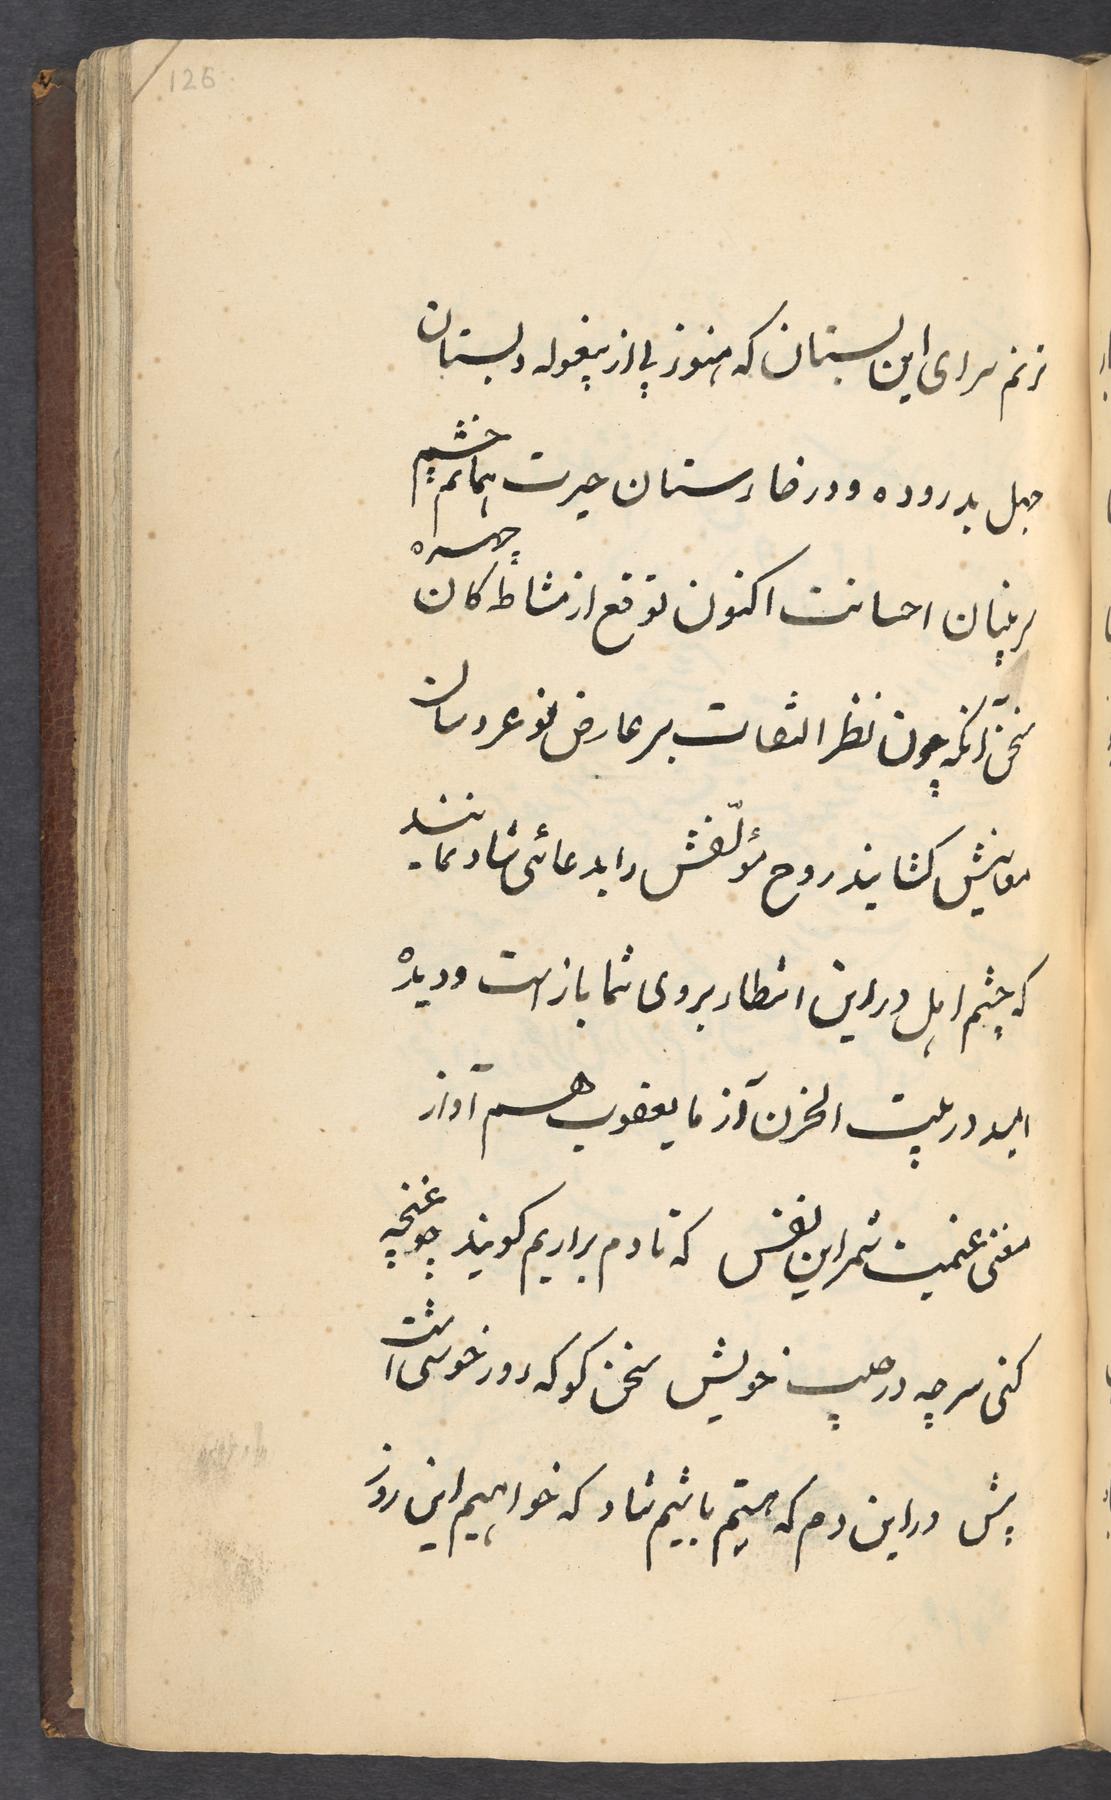 126
ترنم سرای این بستان که هنوز پی از پیغوله دبستان
جهل بدروده و در خارستان حیرت همایم خشم
بر بنیان احسانت اکنون توقع از مشاطه کان چهره
سخن آنکه چون نظر التفات بر عارض نو عروسان
معانیش کشایند روح مؤلّفش را بدعائی شاد نمایند
که چشم امل در این انتظار بروی شما باز است و دیده
امید در بیت الحزن آز ما یعقوب هم آواز
مغنی غنمیت شمر این نفس که تا دم براریم کویند
کنی سر چه در جیب خویش سخن کو که روز خوشی است
پش در این دم که هستیم باشیم شاد که خواهیم این روز